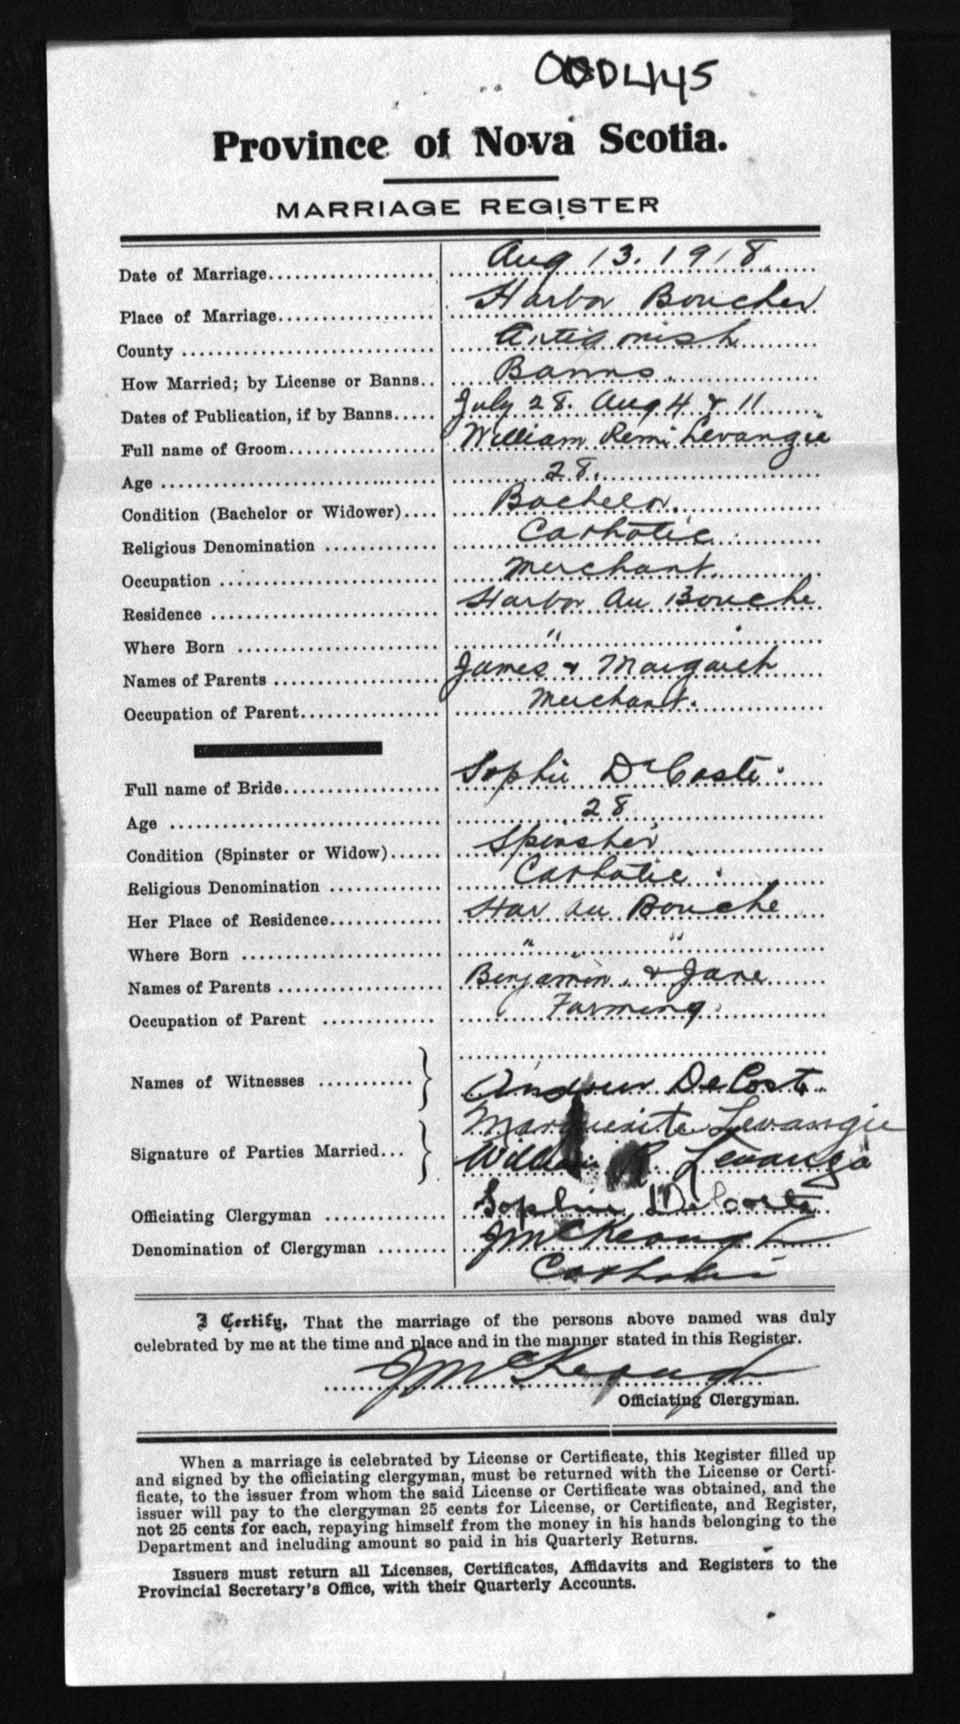 Province of Nova Scotia.
MARRIAGE REGISTER
Date of Marriage Aug 13. 1918.
Place of Marriage Harbor Boucher
County Antigonish
How Married; by License or Banns Banns.
Dates of Publication, if by Banns July 28. Aug 4 & 11
Full name of Groom William Remi Levangie
Age 28.
Condition (Bachelor or Widower) Bachelor.
Religious Denomination Catholic
Occupation Merchant.
Residence Harbor Au Bouche
Where Born "
Names of Parents James & Margaret
Occupation of Parent Merchant.
Full name of Bride Sophie DeCoste
Age 28
Condition (Spinster or Widow) Spinster
Religious Denomination Catholic
Her Place of Residence Har au Bouche
Where Born " "
Names of Parents Benjamin & Jane
Occupation of Parent Farming
Names of Witnesses Andrew DeCoste
Marguerite Levangie
Signature of Parties Married William R. Levangie
Officiating Clergyman Sophie DeCoste
Denomination of Clergyman JMcKeough
Catholic
I Certify, That the marriage of the persons above named was duly
celebrated by me at the time and place and in the manner stated in this Register.
JMcKeough
Officiating Clergyman.
When a marriage is celebrated by License or Certificate, this Register filled up
and signed by the officiating clergyman, must be returned with the License or Certi-
ficate, to the issuer from whom the said License or Certificate was obtained, and the
issuer will pay to the clergyman 25 cents for License, or Certificate, and Register,
not 25 cents for each, repaying himself from the money in his hands belonging to the
Department and including amount so paid in his Quarterly Returns.
Issuers must return all Licenses, Certificates, Affidavits and Registers to the
Provincial Secretary's Office, with their Quarterly Accounts.